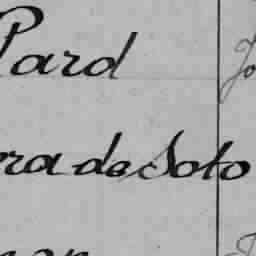 Pard
ra de Soto